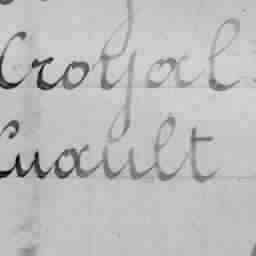 Croyal
Cuault